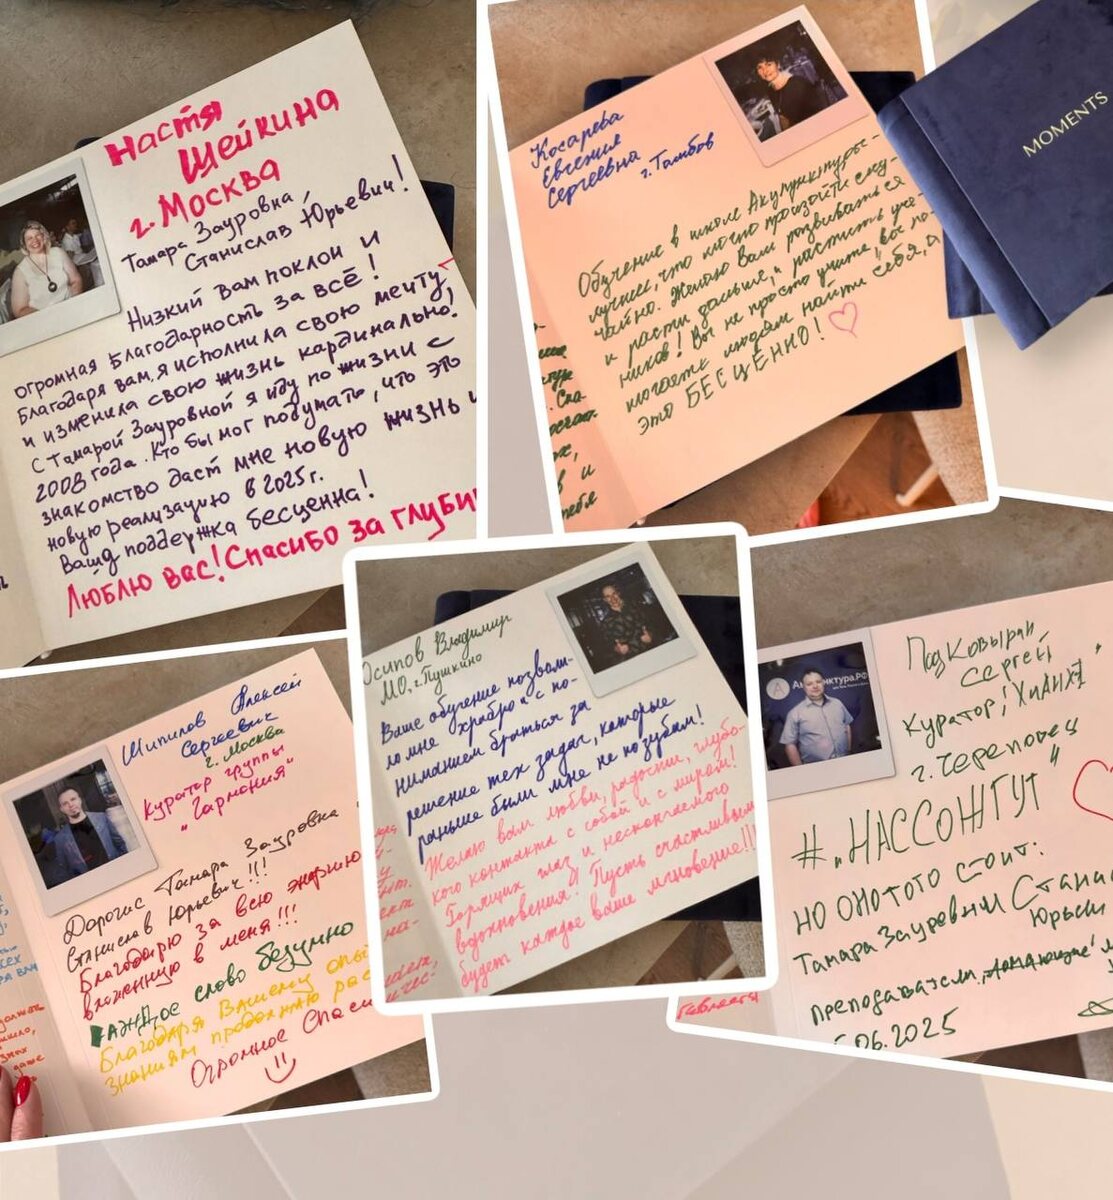 Настя
Шейкина
г. Москва
Тамара Зауровна
Станислав Юрьевич!
Низкий вам поклон и
огромная Благодарность за всё!
Благодаря вам, я исполнила свою мечту,
и изменила свою жизнь кардинально!
С Тамарой Зауровной я иду по жизни с
2008 года. Кто бы мог подумать, что это
знакомство даст мне новую жизнь и
новую реализацию в 2025 г.
Ваша поддержка бесценна!
Люблю вас! Спасибо за глуби
Косарева
Евгения
Сергеевна
г. Тамбов
Обучение в школе Акупрунктуры -
лучшее, что могло произойти слу-
чайно. Желаю Вам развиваться
и расти дальше, и растить уче-
ников! Вы не просто учите, вы по-
могаете людям найти себя, а
это БЕСЦЕННО!
MOMENTS
Шипилов Алексей
Сергеевич
г. Москва
Куратор группы
"Гармония"
Дорогие Тамара Зауровна
Станислав Юрьевич!!!
Благодарю за всю энергию
вложенную в меня!!!
Каждое слово безумно
Благодаря Вашему опы
знаниям продолжаю рас
Огромное Спаси
Осипов Владимир
МО, г. Пушкино
Ваше обучение позволи-
ло мне "храбро" и с по-
ниманием браться за
решение тех задач, которые
раньше были мне не по зубам!
Желаю вам любви, радости, глубо-
кого контакта с собой и с миром!
Горящих глаз и нескончаемого
вдохновения! Пусть счастливым
будет каждое ваше мгновение!!!
Подковырин
Сергей
Куратор
г. Череповец
# "НАССОЖГУТ"
но оно того стоит.
Тамара Зауревым Станис
Юрьеви
преподаватели
06.2025